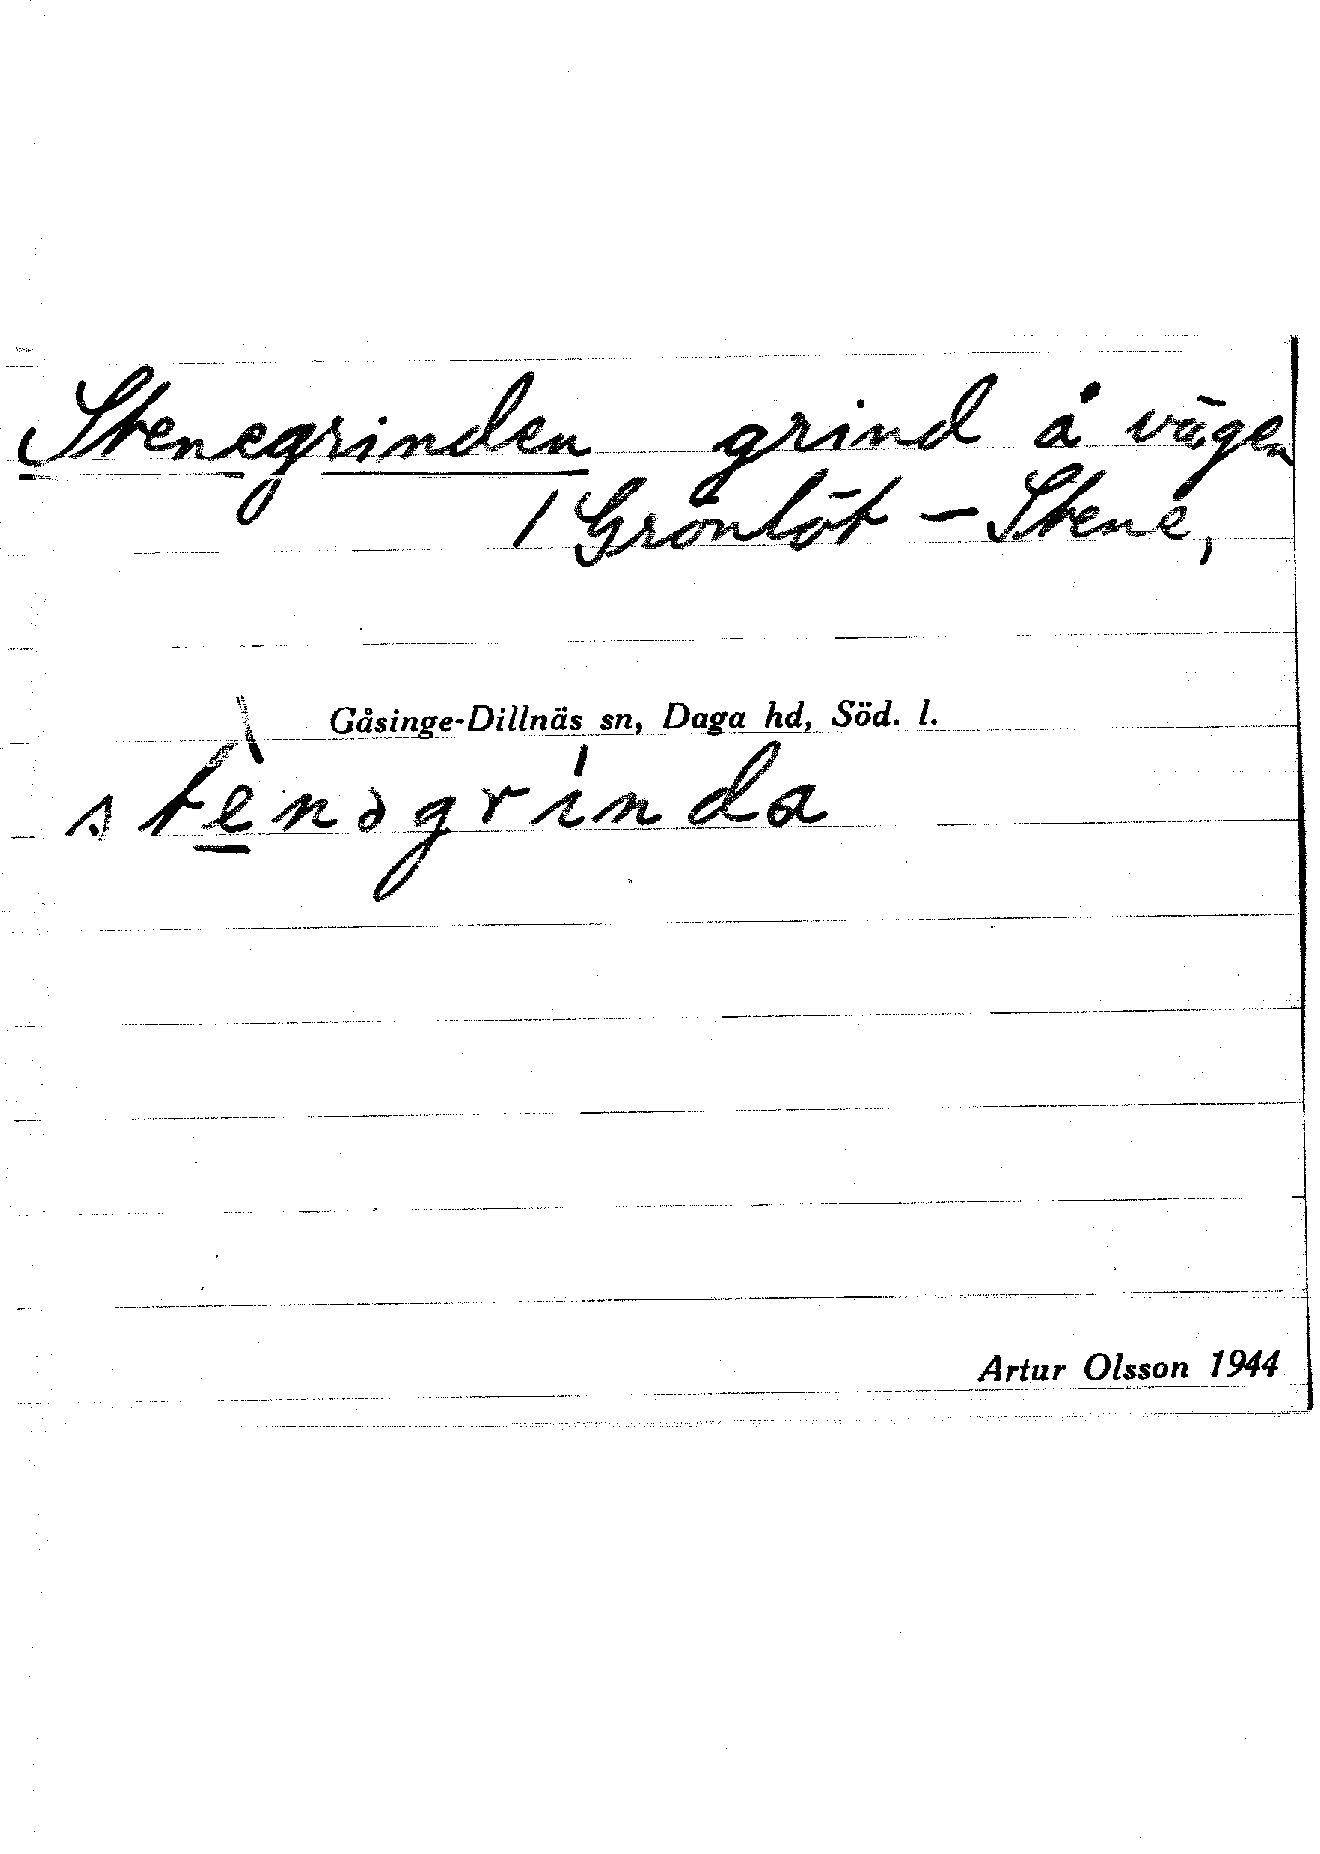 Stenegrinden grind å vägen
/ Grönlöt – Stene,
Gåsinge-Dillnäs sn, Daga hd, Söd. l.
stè̱nəgrínda
Artur Olsson 1944